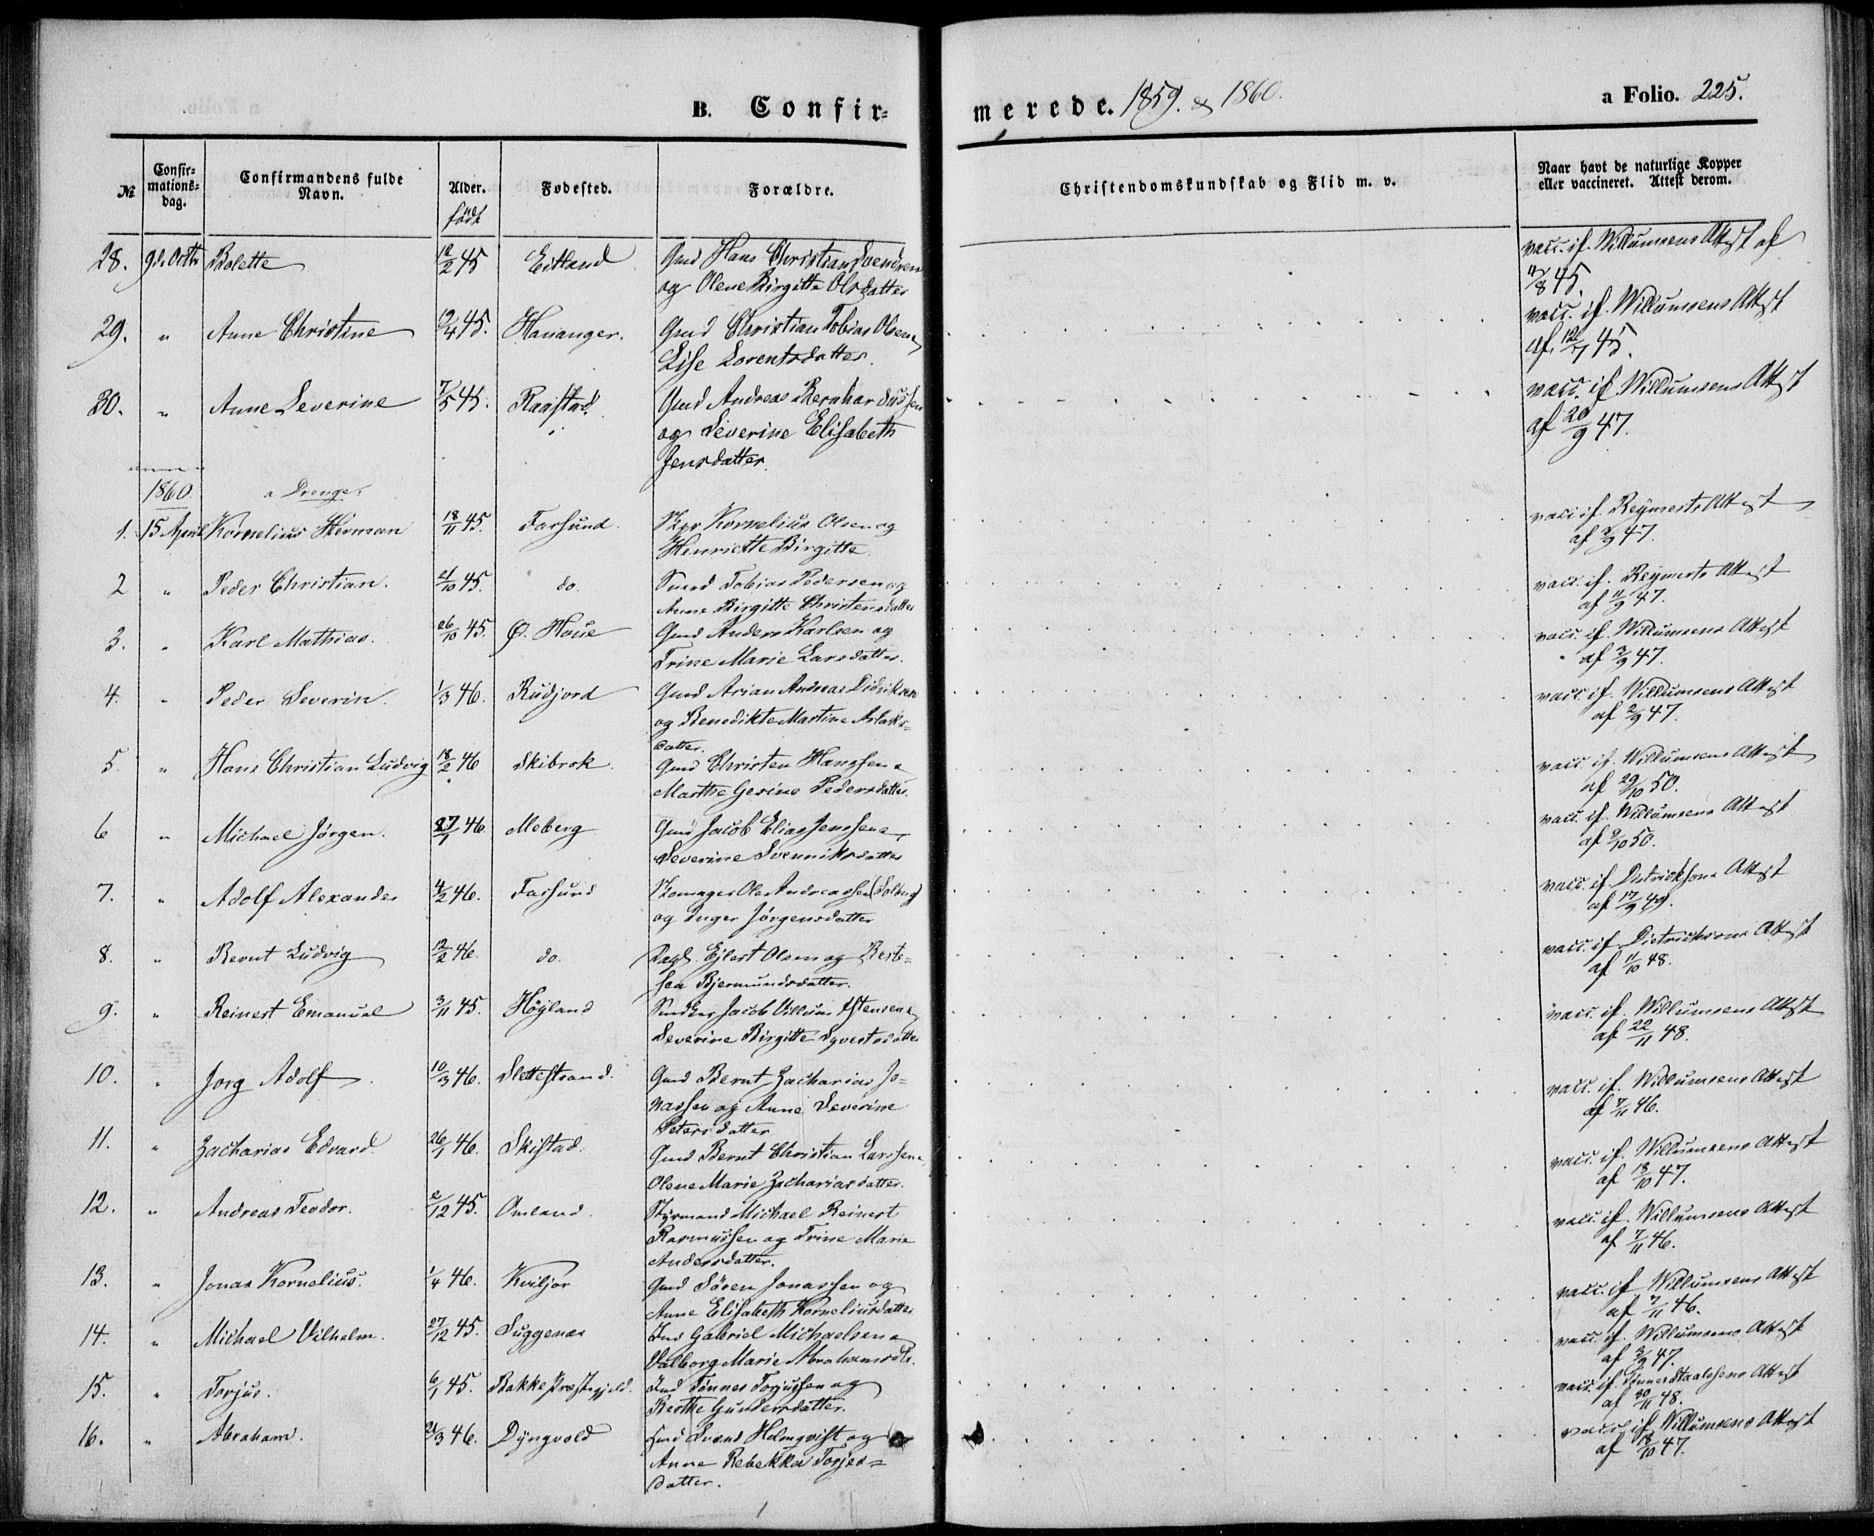 B. Confirmerede. 1859. & 1860.
a Folio. 225.
№
Confirmationsdag.
Confirmandens fulde Navn.
Alder. født
Fødested.
Forældre.
Christendomskundskab og Flid m. v.
Naar havt de naturlige Kopper eller vaccineret. Attest derom.
28. 9de Octbr Bolette 12/2 45 Eitland Gmd Hans Christian Svendsen vacc. if. Willumsens Attest af
og Olene Birgitte Olsdatter 4/8 45.
29. " Anne Christine 19/4 45. Hananger. Gmd Christian Tobias Olsen vacc. if. Willumsens Attest
Lise Lorentsdatter. af 12/7 45.
30. " Anne Severine 7/5 45. Raastad. Gmd Andreas Bernhardussen vacc. if. Willumsens Attest
og Severine Elisabeth af 20/9 47.
Jensdatter.
1860. a Drenge.
1. 15 April Kornelius Herman 18/11 45. Farsund. Skpr Kornelius Olsen og vacc if. Reymerts Attest
Henriette Birgitte af 2/9 47.
2 " Peder Christian. 21/10 45. do. Smed Tobias Pedersen og vacc. if. Reymerts Attest
Anne Birgitte Christensdatter af 11/9 47.
3. " Karl Mathias. 26/10 45. Ø. Haue Gmd Anders Karlsen og vacc. if. Willumsens Attest
Trine Marie Larsdatter. af 2/9 47.
4. " Peder Severin. 1/3 46. Rudjord Gmd Arian Andreas Didriksen vacc. if. Willumsens Attest
og Benedikte Martine Aslaks- af 2/9 47.
datter.
5. " Hans Christian Ludvig 18/2 46 Skibrok. Gmd Christen Hanssen vacc. if. Willumsens Attest
Marthe Gesine Pedersdatter. af 29/10 50.
6 " Michael Jørgen. 27/1 46. Meberg Gmd Jacob Elias Jenssen vacc. if. Willumsens Attest
Severine Svenniksdatter af 9/10 50.
7. " Adolf Alexander 4/2 46. Farsund Skomager Ole Andreassen (Solberg) vacc. if Dietrichsons Attest
og Inger Jørgensdatter af 17/9 49.
8. " Bernt Ludvig 12/2 46. do. Dagl. Ejlert Olsen og Berte- vacc. if Dietrichsons Attest
sea Bjermundsdatter. af 11/10 48.
9. " Reinert Emanuel 3/11 45. Høyland Snedker Jacob Villum Ostensen vacc. if. Willumsens Attest
Severine Birgitte Syvertsdatter af 22/11 48.
10. " Jorg Adolf. 10/3 46. Slettestrand. Gmd Bernt Zacharias Jo- vacc. if. Willumsens Attest
nassen og Anne Severine af 7/11 46.
Petersdatter
11. " Zacharias Edvard. 26/1 46. Skistad. Gmd Bernt Christian Larssen vacc. if. Willumsens Attest
Olene Marie Zachariasdatter. af 18/10 47.
12. " Andreas Teodor. 2/12 45. Omland. Styrmand Michael Reinert vacc. if. Willumsens Attest
Rasmussen og Trine Marie af 7/11 46.
Andersdatter.
13. " Jonas Kornelius. 1/4 46. Kviljor Gmd Søren Jonassen og vacc. if Willumsens Attest
Anne Elisabeth Korneliusdatter af 7/11 46.
14. " Michael Vilhelm. 27/12 45. Luggenæs Ind Gabriel Michaelsen vacc. if. Willumsens Attest
Valborg Marie Abrahamsdtr. af 2/9 47.
15. " Torjus. 6/1 45. Bakke Præstegjeld. Ind Tønnes Torjussen og vacc. if Tønnes Staalesens Attest
Berthe Gundersdatter. af 30/11 48.
16. " Abraham. 21/3 46. Dyngvold Gmd Svend Holmqvist og vacc. if Willumsens Attest
Anne Rebekka Torjes- af 18/10 47.
datter.